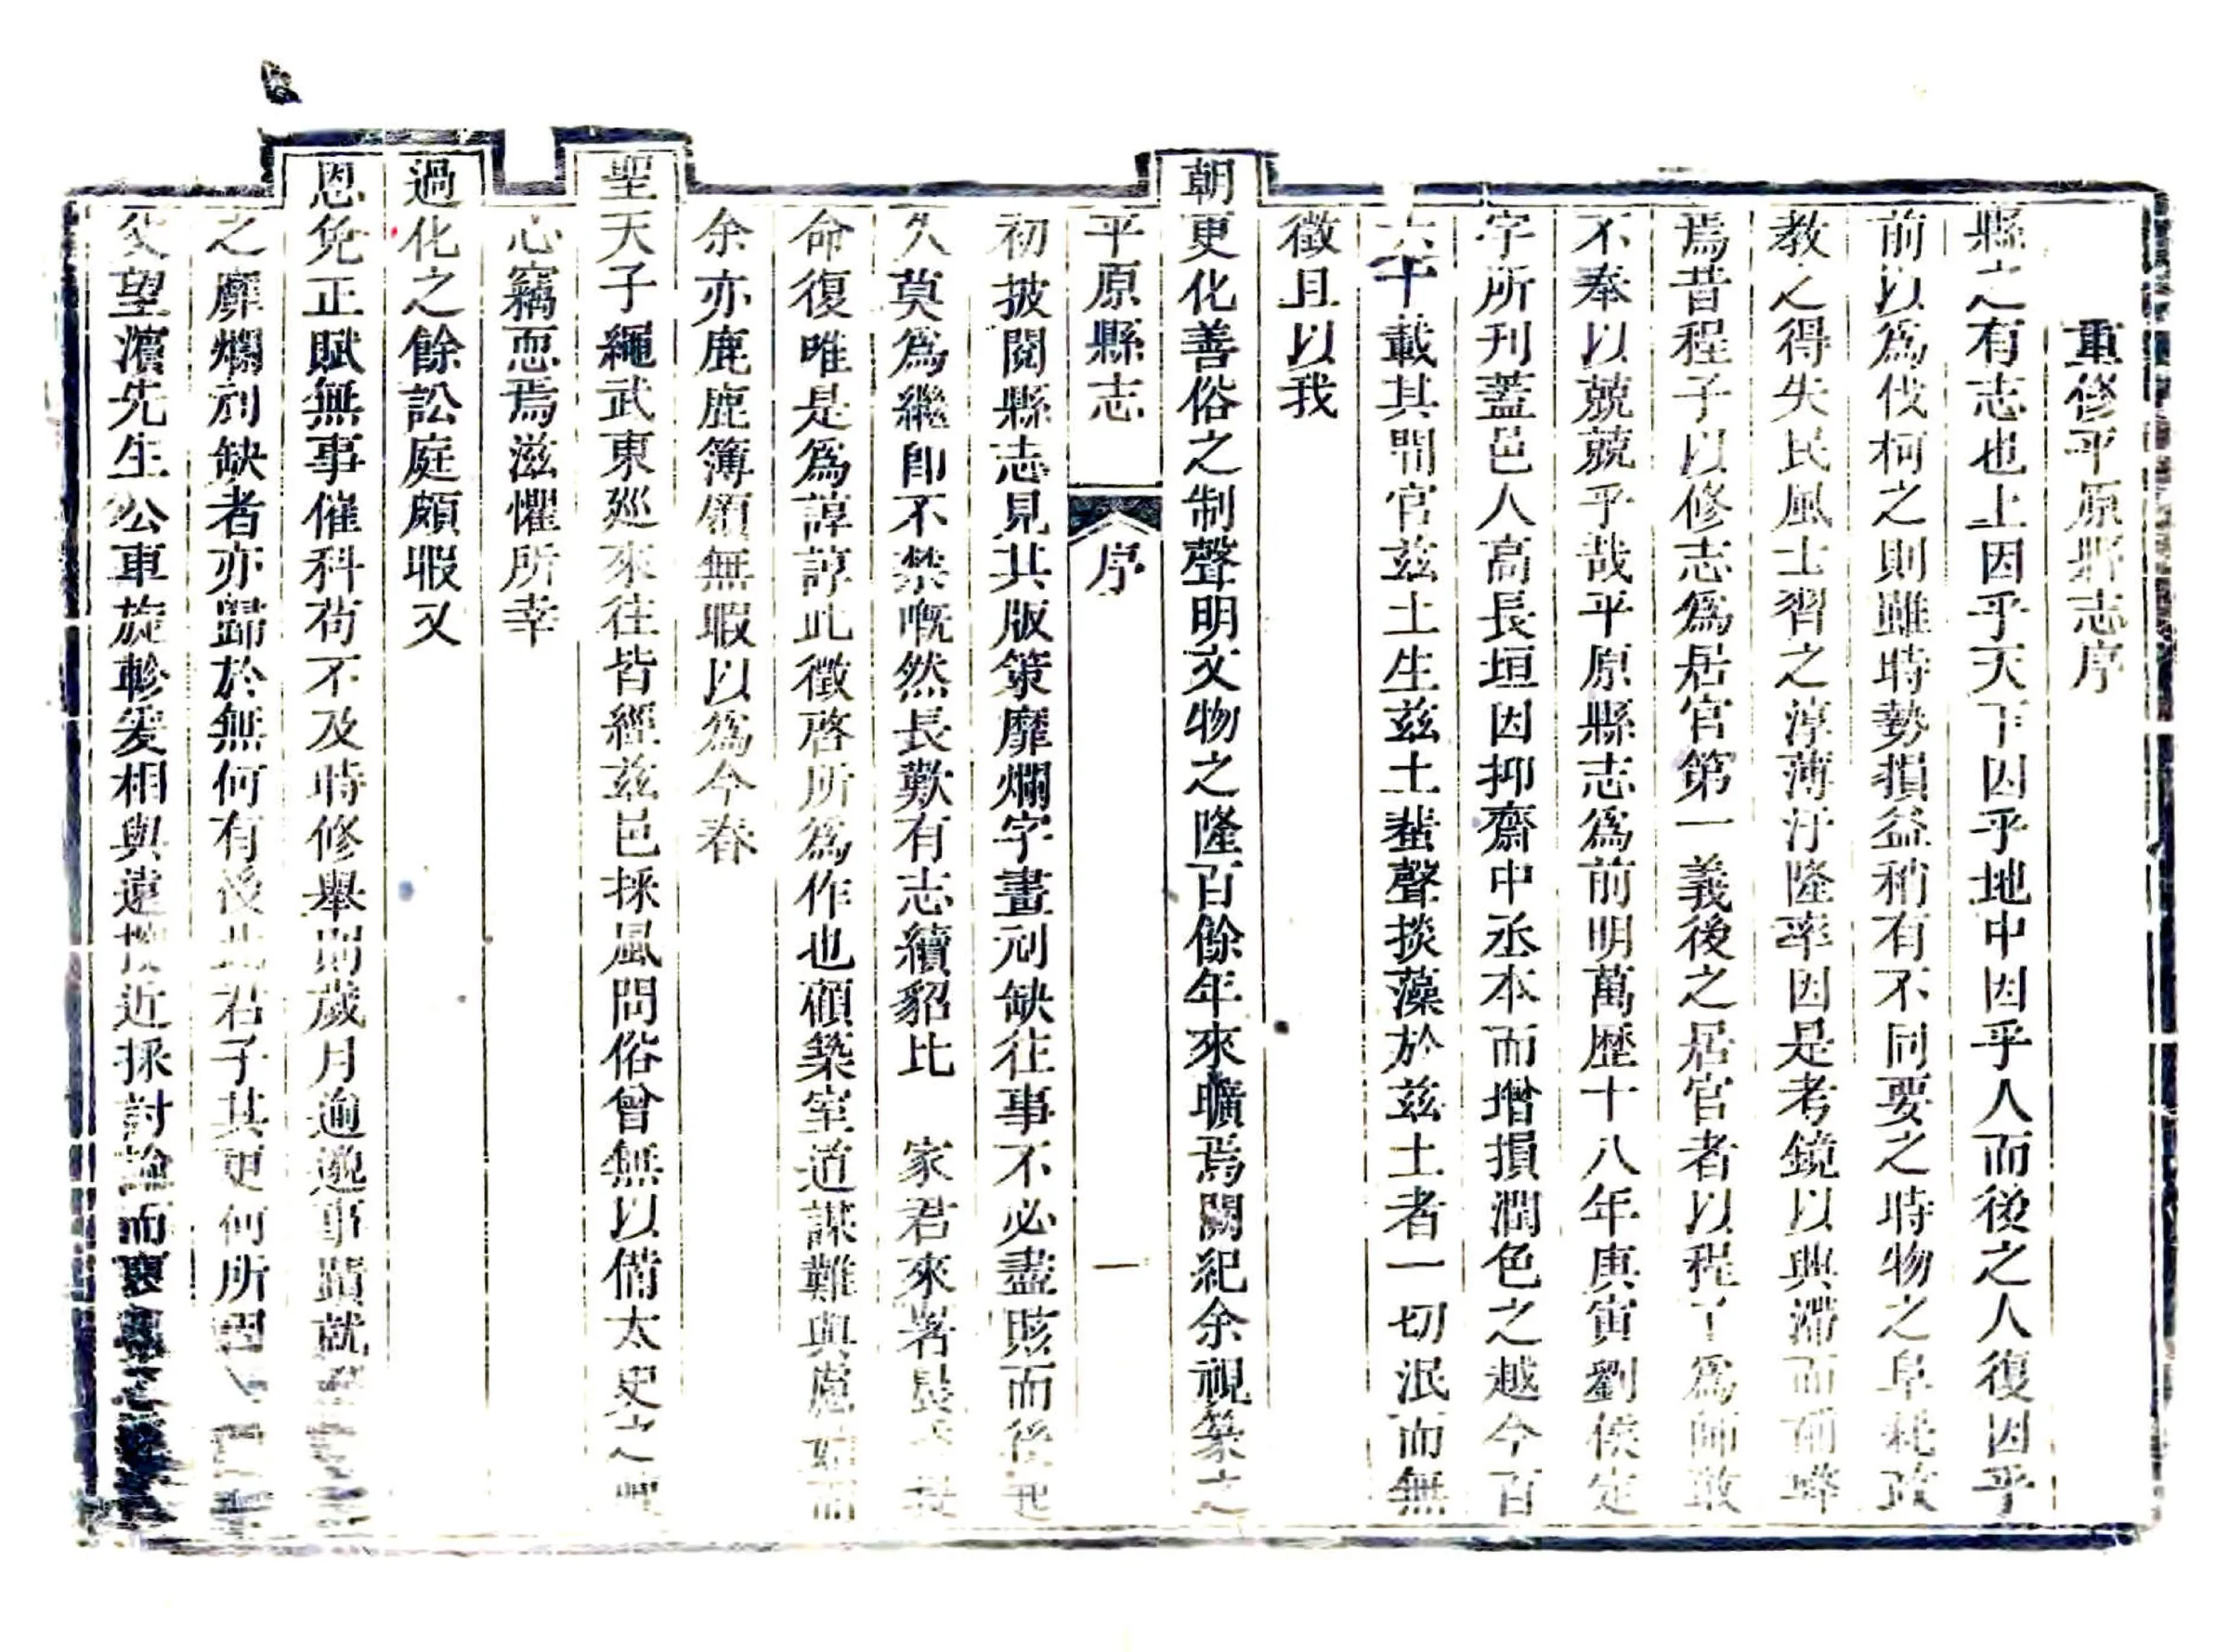 重修平原縣志序
縣之有志也上因乎天下因乎地中因乎人而後之人復因乎
前以為伐柯之則雖時勢損益稍有不同要之時物之阜耗政
教之得失民風士習之淳薄汙隆率因是考鏡以興滯而前
焉昔程子以修志為居官第一義後之居官者以程子為師敢
不奉以兢兢乎哉平原縣志為前明萬歷十八年庚寅劉侯定
字所刊蓋邑人高長垣因抑齋中丞本而增損潤色之越今百
六十載其間官茲土生茲土蜚聲掞藻於茲土者一切泯而無
徵且以我
朝更化善俗之制聲明文物之隆百餘年來曠焉闕紀余視篆之
平原縣志
序
一
初披閱縣志見其版策靡爛字畫刓缺往事不必盡賅而後起
久莫為繼卽不禁嘅然長歎有志續貂比 家君來署
命復唯是為諄諄此徵啓所為作也顧築室道謀難與慮始而
余亦鹿鹿簿領無暇以為今春
聖天子繩武東廵來往皆經茲邑採風問俗曾無以備太史之
心竊恧焉滋懼所幸
過化之餘訟庭頗暇又
恩免正賦無事催科苟不及時修舉則歲月逾邁事蹟就
之靡爛刓缺者亦歸於無何有後此君子其更何所因
父望濱先生公車旋軫爰相與遠搜近採討論而裒